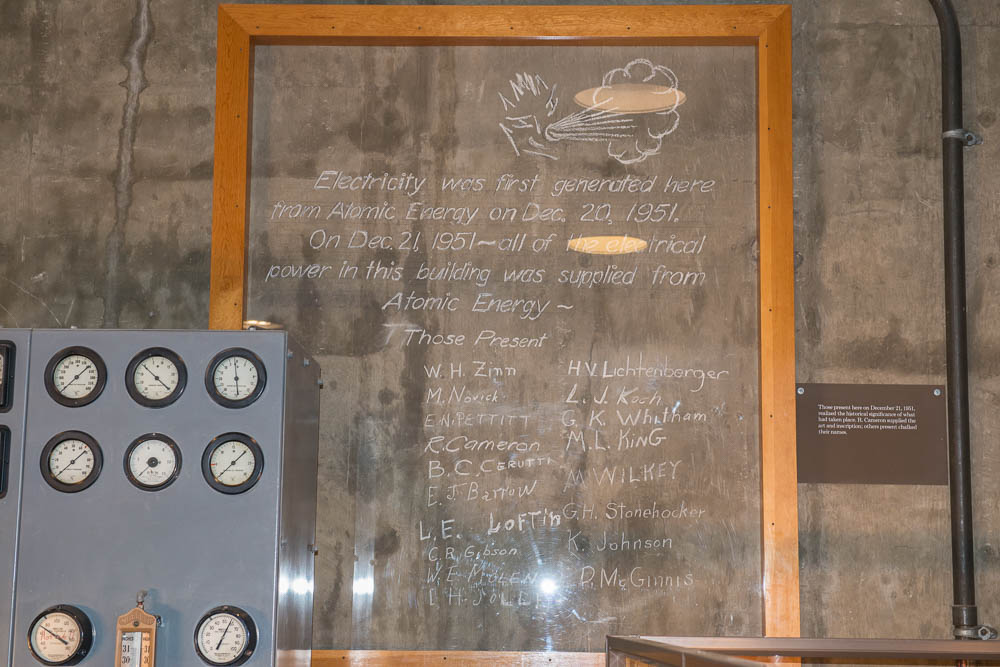 Electricity was first generated here
from Atomic Energy on Dec. 20, 1951.
On Dec. 21, 1951~all of the electrical
power in this building was supplied from
Atomic Energy~
Those Present
W. H. Zinn
M. Novick
E.N. PETTITT
R. Cameron
B. C. CERUTTI
E. J. BARROW
L. E. LOFTIN
C. R. Gibson
W. E.
H.V. LICHTENBERGER
L. J. Koch
G. K. Whitham
M. L. KING
M WILKEY
G.H. Stonehocker
K. Johnson
D. McGinnis
Those present here on December 21, 1951,
realized the historical significance of what
had taken place. R. Cameron supplied the
art and inscription; others present chalked
their names.